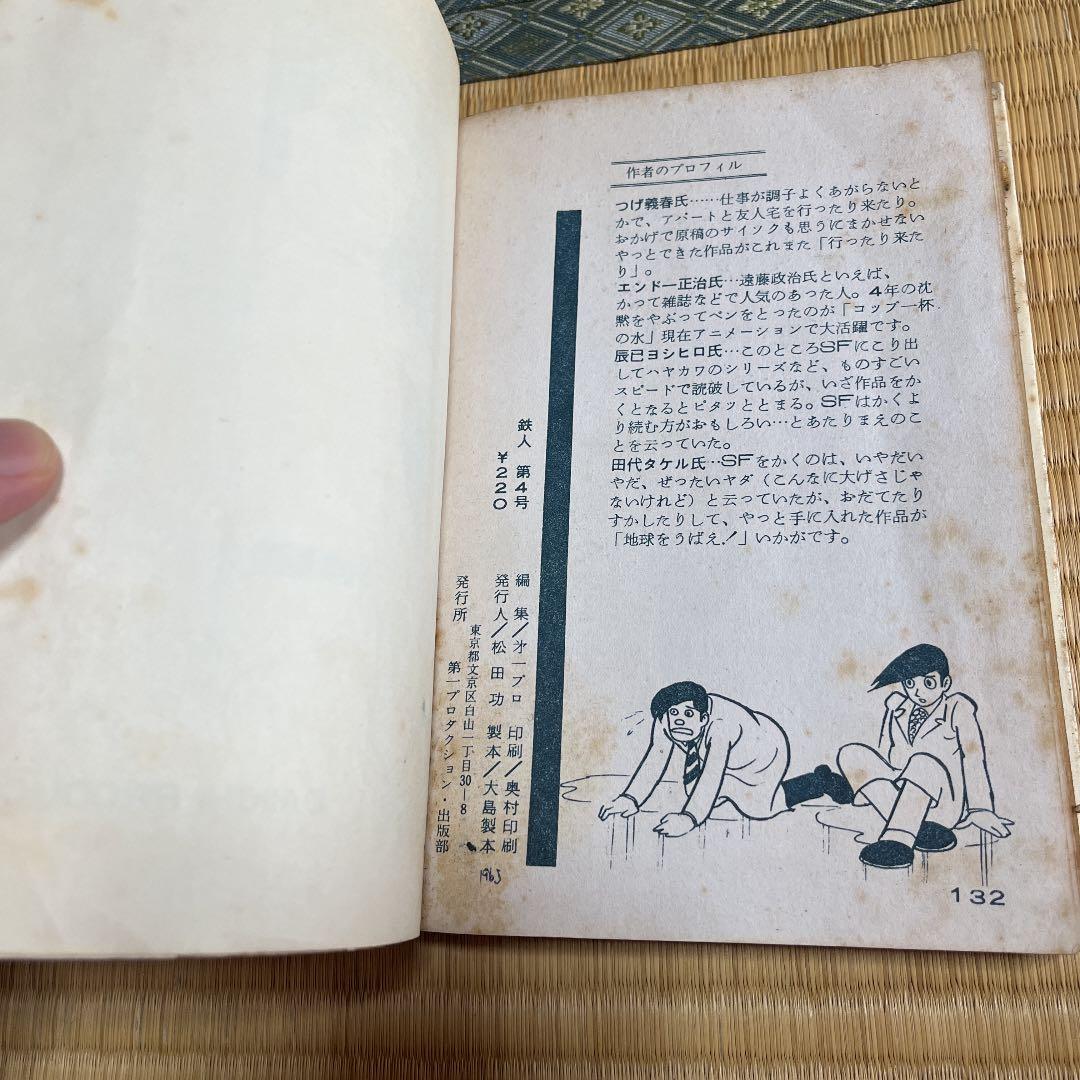 作者のプロフィル
つげ義春氏……仕事が調子よくあがらないと
かで、アパートと友人宅を行ったり来たり。
おかげで原稿のサイソクも思うにまかせない
やっとできた作品がこれまた「行ったり来た
り」。
エンド一正治氏…遠藤政治氏といえば、
かって雑誌などで人気のあった人。4年の沈
黙をやぶってペンをとったのが「コップ一杯
の水」現在アニメーションで大活躍です。
辰已ヨシヒロ氏…このところSFにこり出
してハヤカワのシリーズなど、ものすごい
スピードで読破しているが、いざ作品をか
くとなるとピタッととまる。SFはかくよ
り続む方がおもしろい…とあたりまえのこ
とを云っていた。
田代タケル氏…SFをかくのは、いやだい
やだ、ぜったいヤダ（こんなに大げさじゃ
ないけれど）と云っていたが、おだてたり
すかしたりして、やっと手に入れた作品が
「地球をうばえ！」いかがです。
鉄人 第4号
￥220
編集/才一プロ 印刷/奥村印刷
発行人/松田功 製本/大島製本
発行所 東京都文京区白山一丁目30―8
第一プロダクション・出版部
1965
132